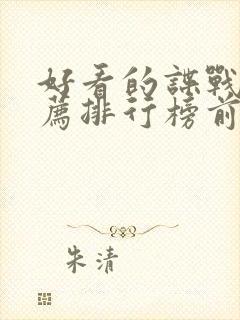 好看的諜戰
薦排行榜前
朱清